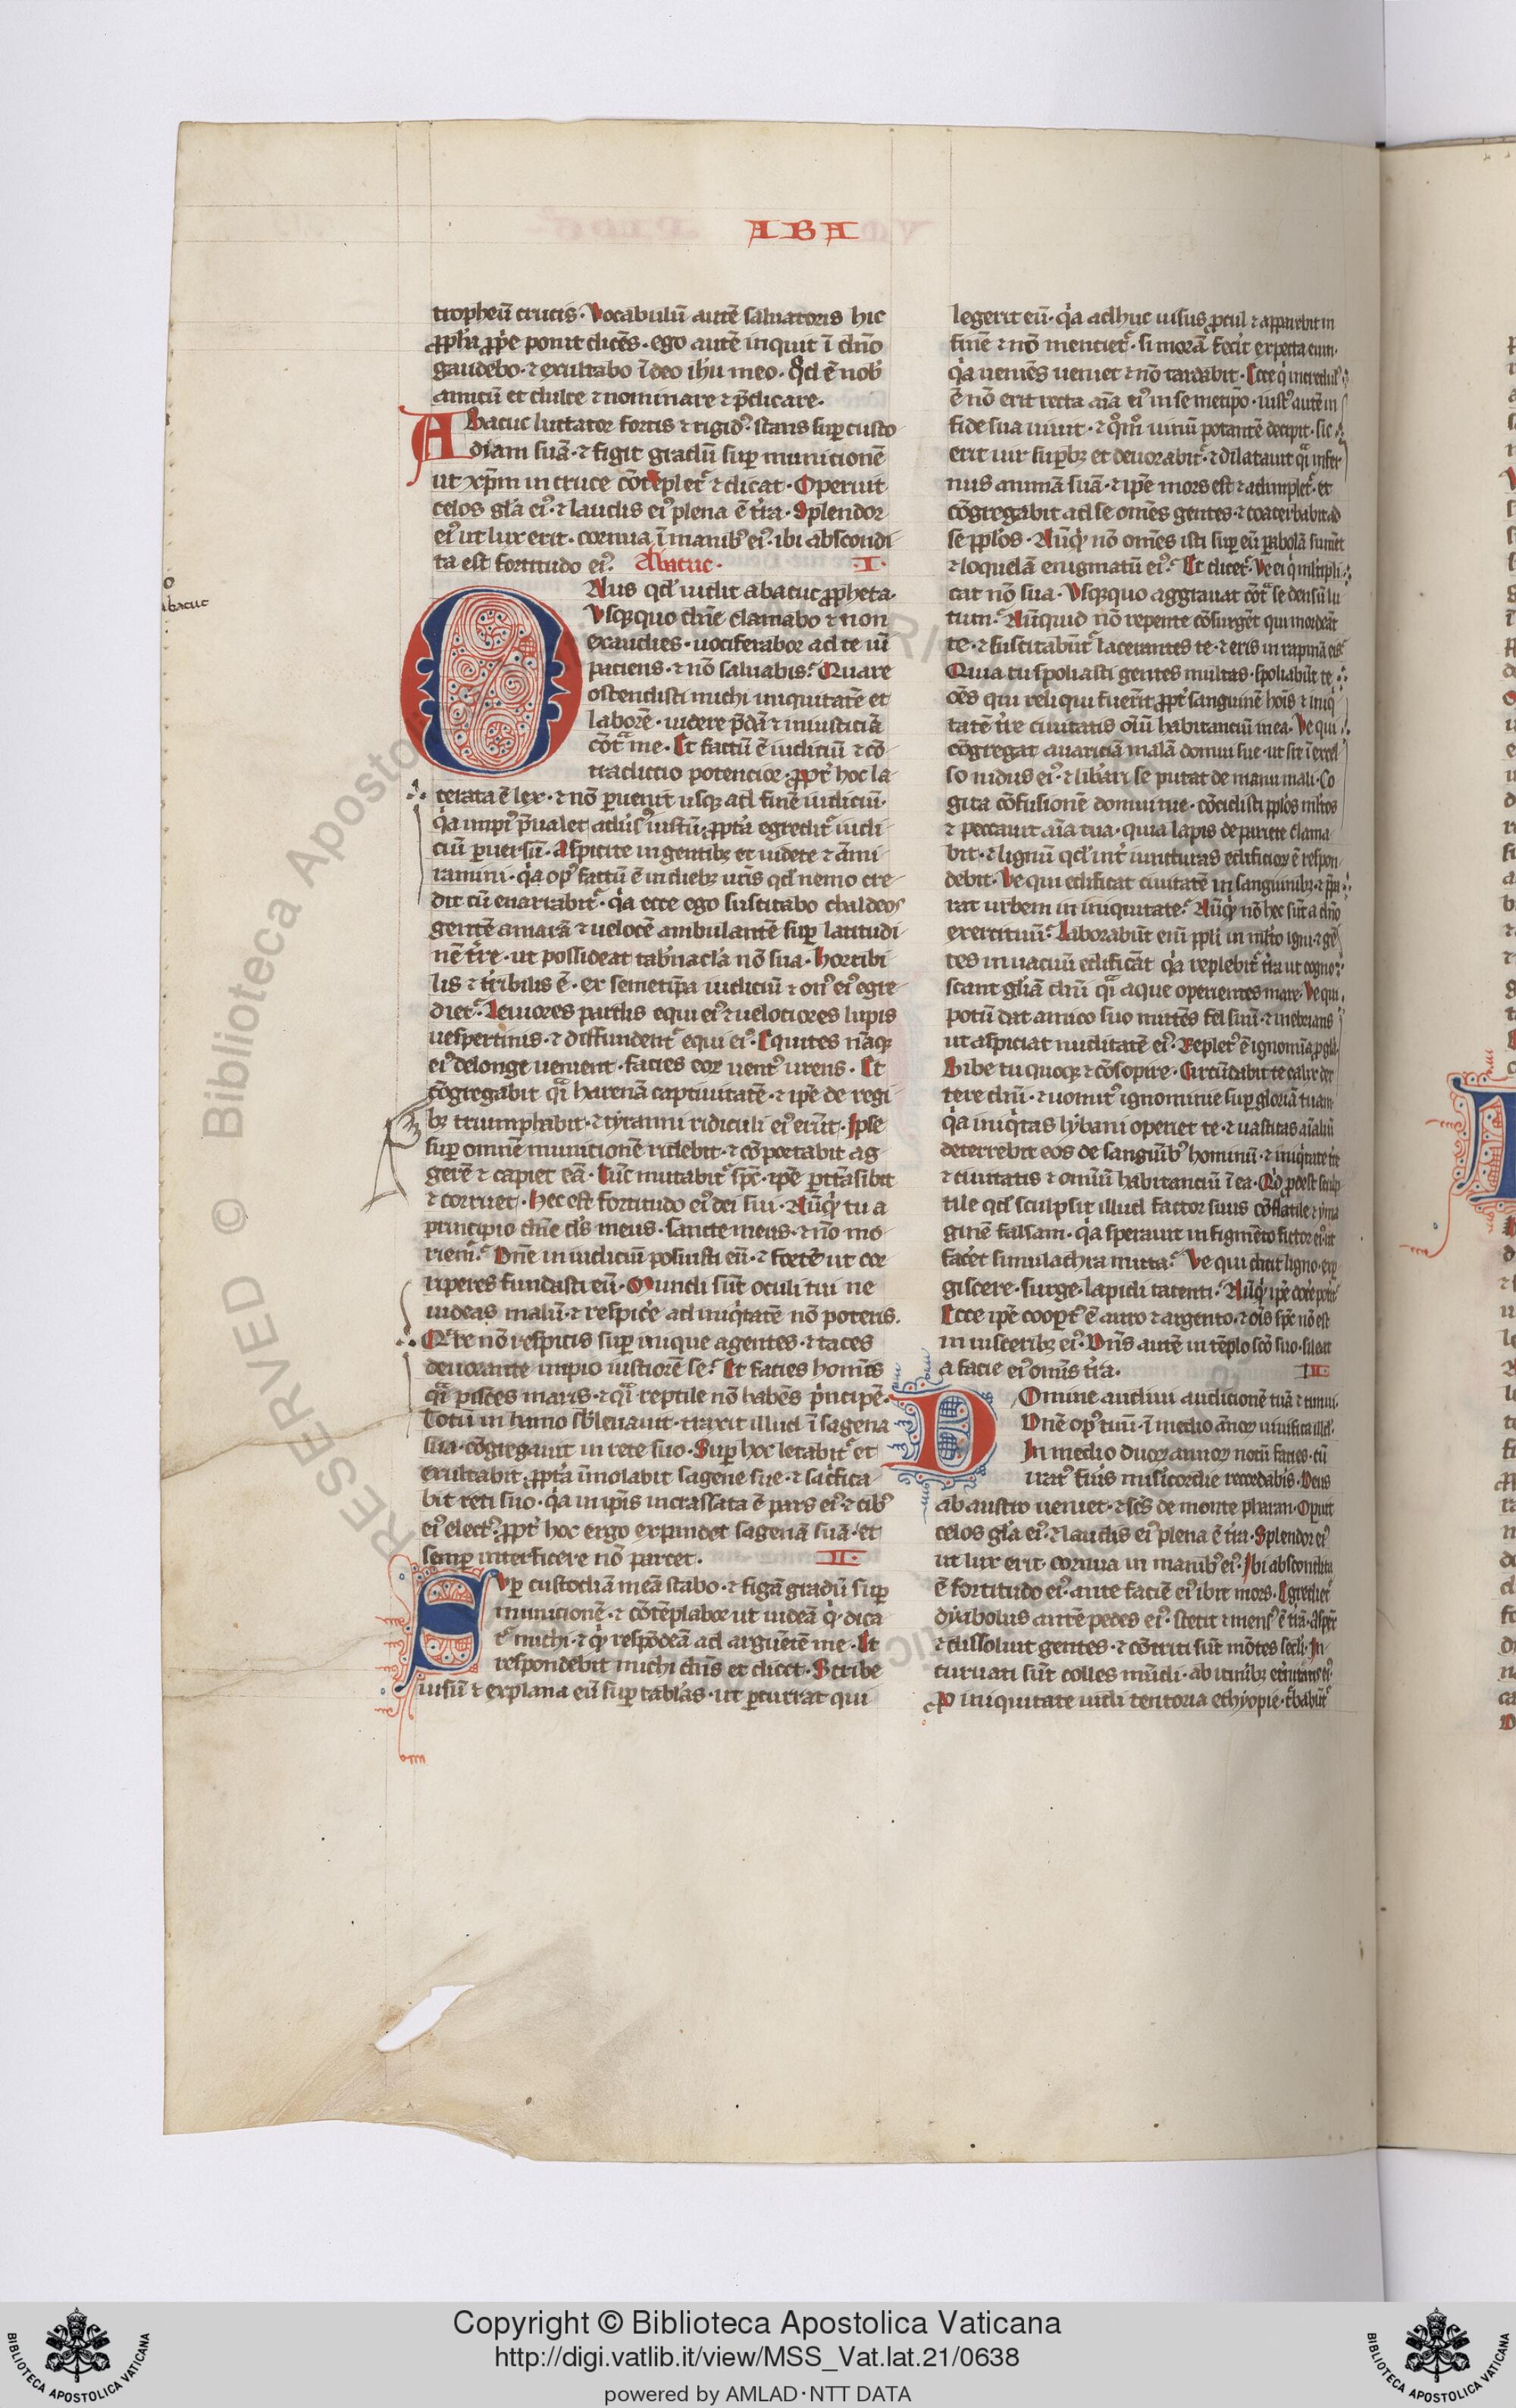 ABA
tropheū crucis. Vocabulū autē saluatoris hic
ꝓph̄a ꝓp̄e ponit dicēs. ego autē inquit ī dn̄o
gaudebo. ⁊ exultabo ī deo ih̄u meo. Qd̓ ē nob̓
amicū et dulce ⁊ nominare ⁊ p̄dicare.
Abacuc luctator fortis ⁊ rigidꝰ. stans suꝑ custo
diam suā. ⁊ figit gradū suꝑ municionē
ut xp̄m in cruce cōtēplet᷑ ⁊ dicat. Operuit
celos gl̓a eiꝰ. ⁊ laudis eiꝰ plena ē t̓ra. Splendor
eiꝰ ut lux erit. cornua ī manib̓ eiꝰ. ibi abscondi
ta est fortitudo eiꝰ. Abacuc. .I.
abacuc
ONus qd̓ uidit abacuc ꝓpheta.
Vsq̨quo dn̄e clamabo ⁊ non
exaudies. uociferabor ad te uī
paciens. ⁊ nō saluabis. Quare
ostendisti michi iniquitatē et
laborē. uidere p̄dā ⁊ iniusticiā
cōtͣ me. Et factū ē iudiciū ⁊ cō
tradictio potencior. ꝓpt̓ hoc la
cerata ē lex. ⁊ nō ꝑuenit usq̨ ad finē iudiciū.
qͥa impiꝰ p̄ualet aduẜꝰ iustū. ꝓpt̓a egredit᷑ iudi
ciū ꝑuersū. Aspicite in gentibꝫ et uidete ⁊ āmi
ramini. qͥa opꝰ factū ē in diebꝫ ur̄is qd̓ nemo cre
dit cū enarrabit᷑. qͥa ecce ego suscitabo chaldeos
gentē amarā ⁊ uelocē ambulantē suꝑ latitudi
nē t̓re. ut possideat tab̓nacl̓a nō sua. Horribi
lis ⁊ t̓ribilis ē. ex semetip̄a iudiciū ⁊ onꝰ eiꝰ egre
diet᷑. Leuiores pardis equi eiꝰ ⁊ uelociores lupis
uespertinis. ⁊ diffundent᷑ equi eiꝰ. Equites nāq̨
eiꝰ delonge uenient. facies eoꝝ uentꝰ urens. Et
cōgregabit qͣi harenā captiuitatē. ⁊ ip̄e de regi
bꝫ triumphabit. ⁊ tyranni ridiculi eiꝰ erūt. Ipse
suꝑ omnē municionē ridebit. ⁊ cōportabit ag
gerē ⁊ capiet eā. Tūc mutabit᷑ sp̄c. ⁊ ip̄e ꝑtrāsibit
⁊ corruet. Hec est fortitudo eiꝰ dei sui. Nūqͥd tu a
principio dn̄e ds̓ meus. sancte meus. ⁊ nō mo
riem᷑. Dn̄e in iudiciū posuisti eū. ⁊ fortē ut cor
riperes fundasti eū. Mundi sūt oculi tui ne
uideas malū. ⁊ respic̓e ad iniqͥtatē nō poteris.
Qͬre nō respicis suꝑ inique agentes. ⁊ taces
deuorante impio iustiorē se. Et facies homīs
qͣi pisces maris. ⁊ qͣi reptile nō habēs pͥncipē.
Totū in hamo sb̓leuauit. traxit illud ī sagena
sua. cōgregauit in rete suo. Suꝑ hoc letabit᷑ et
exultabit. ꝓpt̓a īmolabit sagene sue. ⁊ sac̓fica
bit reti suo. qͥa in ip̄is incrassata ē pars eiꝰ. ⁊ cibꝰ
eiꝰ electꝰ. ꝓpt̓ hoc ergo expandet sagenā suā. et
semꝑ interficere nō parcet. .II.
Suꝑ custodiā meā stabo. ⁊ figā gradū suꝑ
municionē. ⁊ cōtēplabor ut uideā qͥd dica
t᷑ michi. ⁊ qͥd respōdeā ad arguētē me. Et
respondebit michi dn̄s et dicet. Scribe
uisū ⁊ explana eū suꝑ tabl̓as. ut ꝑcurrat qui
legerit eū. qͥa adhuc uisus ꝓcul ⁊ apparebit in
finē ⁊ nō menciet᷑. si morā fec̓it expecta eum.
qͥa ueniēs ueniet ⁊ nō tardabit. Ecce qͥ incredulꝰ
ē nō erit recta aīa eiꝰ in se metipo. iustꝰ autē in
fide sua uiuit. ⁊ qͦm̄ uinū potantē decipit. sic
erit uir suꝑbꝫ et decorabit᷑. ⁊ dilatauit qͣi infer
nus animā suā. ⁊ ip̄e mors est ⁊ adimplet᷑. et
cōgregabit ad se omēs gentes. ⁊ coaceruabit ad
se pp̄los. Nūqͥd nō omēs isti suꝑ eū ꝑabolā sumēt
⁊ loquelā enigmatū eiꝰ. Et dicet᷑. Ve ei qui ml̓tipli
cat nō sua. Vsq̨quo aggrauat cōtͣ se densū lu
tum. Nūnquid nō repente cōsurgēt qui mordeāt
te. ⁊ suscitabūt᷑ lacerantes te. ⁊ eris in rapinā eis.
Quia tu spoliasti gentes multas. spoliabūt te
oēs qui reliqui fuerīt ꝓpt̓ sanguinē hoīs ⁊ iniqͥ
tatē t̓re ciuitatis oīū habitanciū in ea. Ve qui
cōgregat auariciā malā domui sue. ut sit ī excel
so nidus eiꝰ. ⁊ lib̓ari se putat de manu mali. Co
gita cōfusionē domui tue. cōcidisti pp̄los ml̓tos
⁊ peccauit aīa tua. quia lapis de pariete clama
bit. ⁊ lignū qd̓ int̓ iuncturas edificioꝝ ē respon
debit. Ve qui edificat ciuitatē in sanguinibꝫ. ⁊ p̄pa
rat urbem in iniquitate. Nūqͥd nō hec sūt a dn̄o
exercituū. Laborabūt enī pp̄li in ml̓to igni. ⁊ gē
tes in uacuū ⁊ deficiēt. qͥa replebit᷑ t̓ra ut cogno
scant gl̓iā dn̄i qͣi aque operientes mare. Ve qui
potū dat amico suo mittēs fel suū. ⁊ inebrians
ut aspiciat nuditatē eiꝰ. Repletꝰ ē ignominia ꝓ gl̓a.
Bibe tu quoq̨ ⁊ cōsopire. Circūdabit te calix dex
tere dn̄i. ⁊ uomitꝰ ignominie suꝑ gloriā tuam.
qͥa iniqͥtas lybani operiet te. ⁊ uastitas aīaliū
deterrebit eos de sanguīb̓ hominū. ⁊ iniqͥtate t̓re
⁊ ciuitatis ⁊ omīū habitanciū ī ea. Qͥd ꝓdest sculp
tile qd̓ sculpsit illud factor suus cōflatile ⁊ yma
ginē falsam. qͥa sperauit in figmēto fictor eiꝰ. ut
facēt simulachra muta. Ve qui dicit ligno. exp
giscere. surge. lapidi tacenti. Nūqͥd ip̄e doc̓e pot̓it.
Ecce ip̄e cooꝑtꝰ ē auro ⁊ argento. ⁊ oīs sp̄c nō est
in uisceribꝫ eiꝰ. Dn̄s autē in tēplo scō suo. sileat
a facie eiꝰ omīs t̓ra. III.
Domine audiui auditionē tuā ⁊ timui.
Dn̄e opꝰ tuū. ī medio ānoꝝ uiuifica illd̓.
In medio duoꝝ annoꝝ notū facies. cū
iratꝰ fu̓is misericordie recordabis. Deus
ab austro ueniet. ⁊ scs̄ de monte pharan. Operuit
celos gl̓a eiꝰ. ⁊ laudis eiꝰ plena ē t̓ra. Splendor eiꝰ
ut lux erit. cornua in manib̓ eiꝰ. Ibi abscondita
ē fortitudo eiꝰ. ante faciē eiꝰ ibit mors. Egrediet᷑
dyabolus ante pedes eiꝰ. stetit ⁊ mensꝰ ē t̓rā. aspex̓
⁊ dissoluit gentes. ⁊ cōtriti sūt mōtes sc̄li. In
curuati sūt colles mūdi. ab itinibꝫ et̓nitatis eiꝰ.
Pro iniquitate uidi tentoria ethyopie. t̓babūt᷑
RESERVED © Biblioteca Apostolica
Copyright © Biblioteca Apostolica Vaticana
http://digi.vatlib.it/view/MSS_Vat.lat.21/0638
powered by AMLAD·NTT DATA
BIBLIOTECA APOSTOLICA VATICANA
BIBLIOTECA APOSTOLICA VATICANA